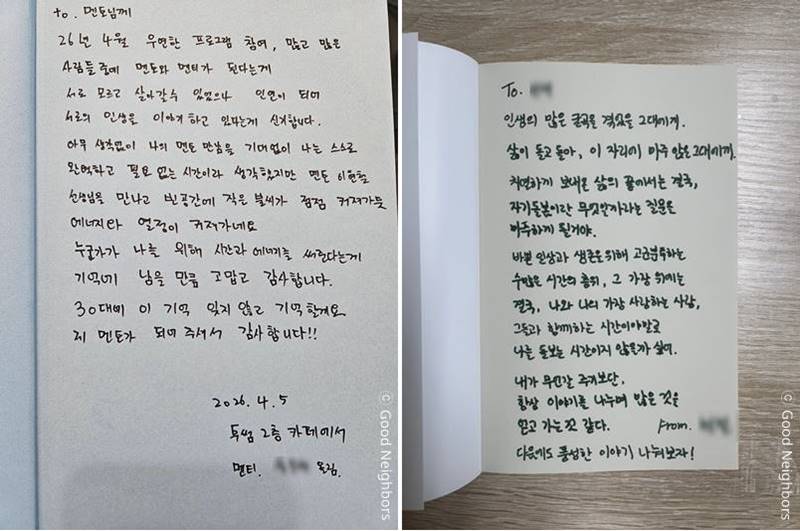 to. 멘토님께
26년 4월 우연한 프로그램 참여, 많고 많은
사람들 중에 멘토와 멘티가 된다는게
서로 모르고 살아갈 수 있었으나 인연이 되어
서로의 인생을 이야기 하고 있다는게 신기합니다.
아무 생각없이 나의 멘토 만남을 기대없이 나는 스스로
완벽하고 필요 없는 시간이라 생각했지만 멘토
선생님을 만나고 빈공간에 작은 불씨가 점점 커져가듯
에너지와 열정이 커져가네요
누군가가 나를 위해 시간과 에너지를 써준다는게
기억에 남을 만큼 고맙고 감사합니다.
30대에 이 기억 잊지 않고 기억할게요
제 멘토가 되어 주셔서 감사합니다!!
2026.4.5
투썸 2층 카페에서
멘티. 올림.
To.
인생의 많은 굴곡을 겪었을 그대에게.
삶이 돌고 돌아, 이 자리에 마주 앉은 그대에게.
치열하게 보내온 삶의 끝에서는 결국,
자기돌봄이란 무엇일까라는 질문을
마주하게 될거야.
바쁜 일상과 생존을 위해 고군분투하는
수많은 시간의 층위, 그 가장 위에는
결국, 나와 나의 가장 사랑하는 사람,
그들과 함께하는 시간이야말로
나를 돌보는 시간이지 않을까 싶어.
내가 무언갈 주기보단,
항상 이야기를 나누며 많은 것을
얻고 가는 것 같다. From.
다음에도 풍성한 이야기 나눠보자!
ⓒ Good Neighbors
ⓒ Good Neighbors